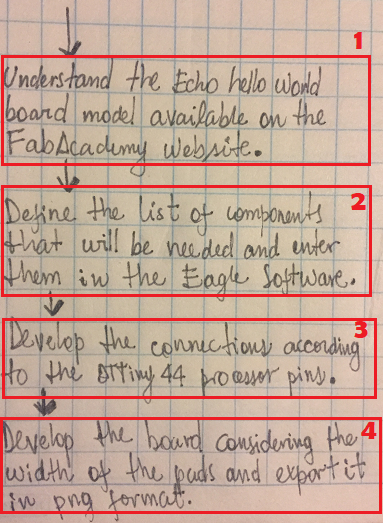 1
Understand the Echo hello world
board model available on the
FabAcademy website.
2
Define the list of components
that will be needed and enter
them in the Eagle Software.
3
Develop the connections according
to the ATTiny 44 processor pins.
4
Develop the board considering the
width of the pads and export it
in png format.